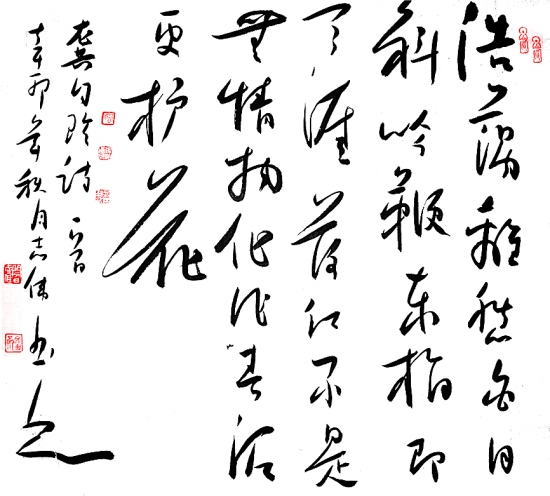 浩蕩離愁白日
斜吟鞭东指即
天涯落红不是
無情物化作春泥
更护花
龚自珍诗一首
辛卯年秋月志伟书